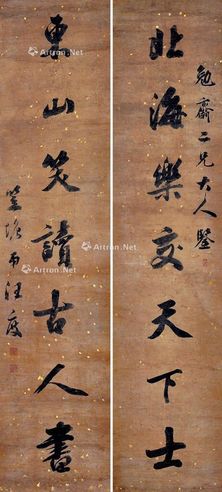 勉齋二兄大人鑒
北海樂交天下士
東山笑讀古人書
弟汪度
Artron.Net
Artron.Net
Artron.Net
Artron.Net